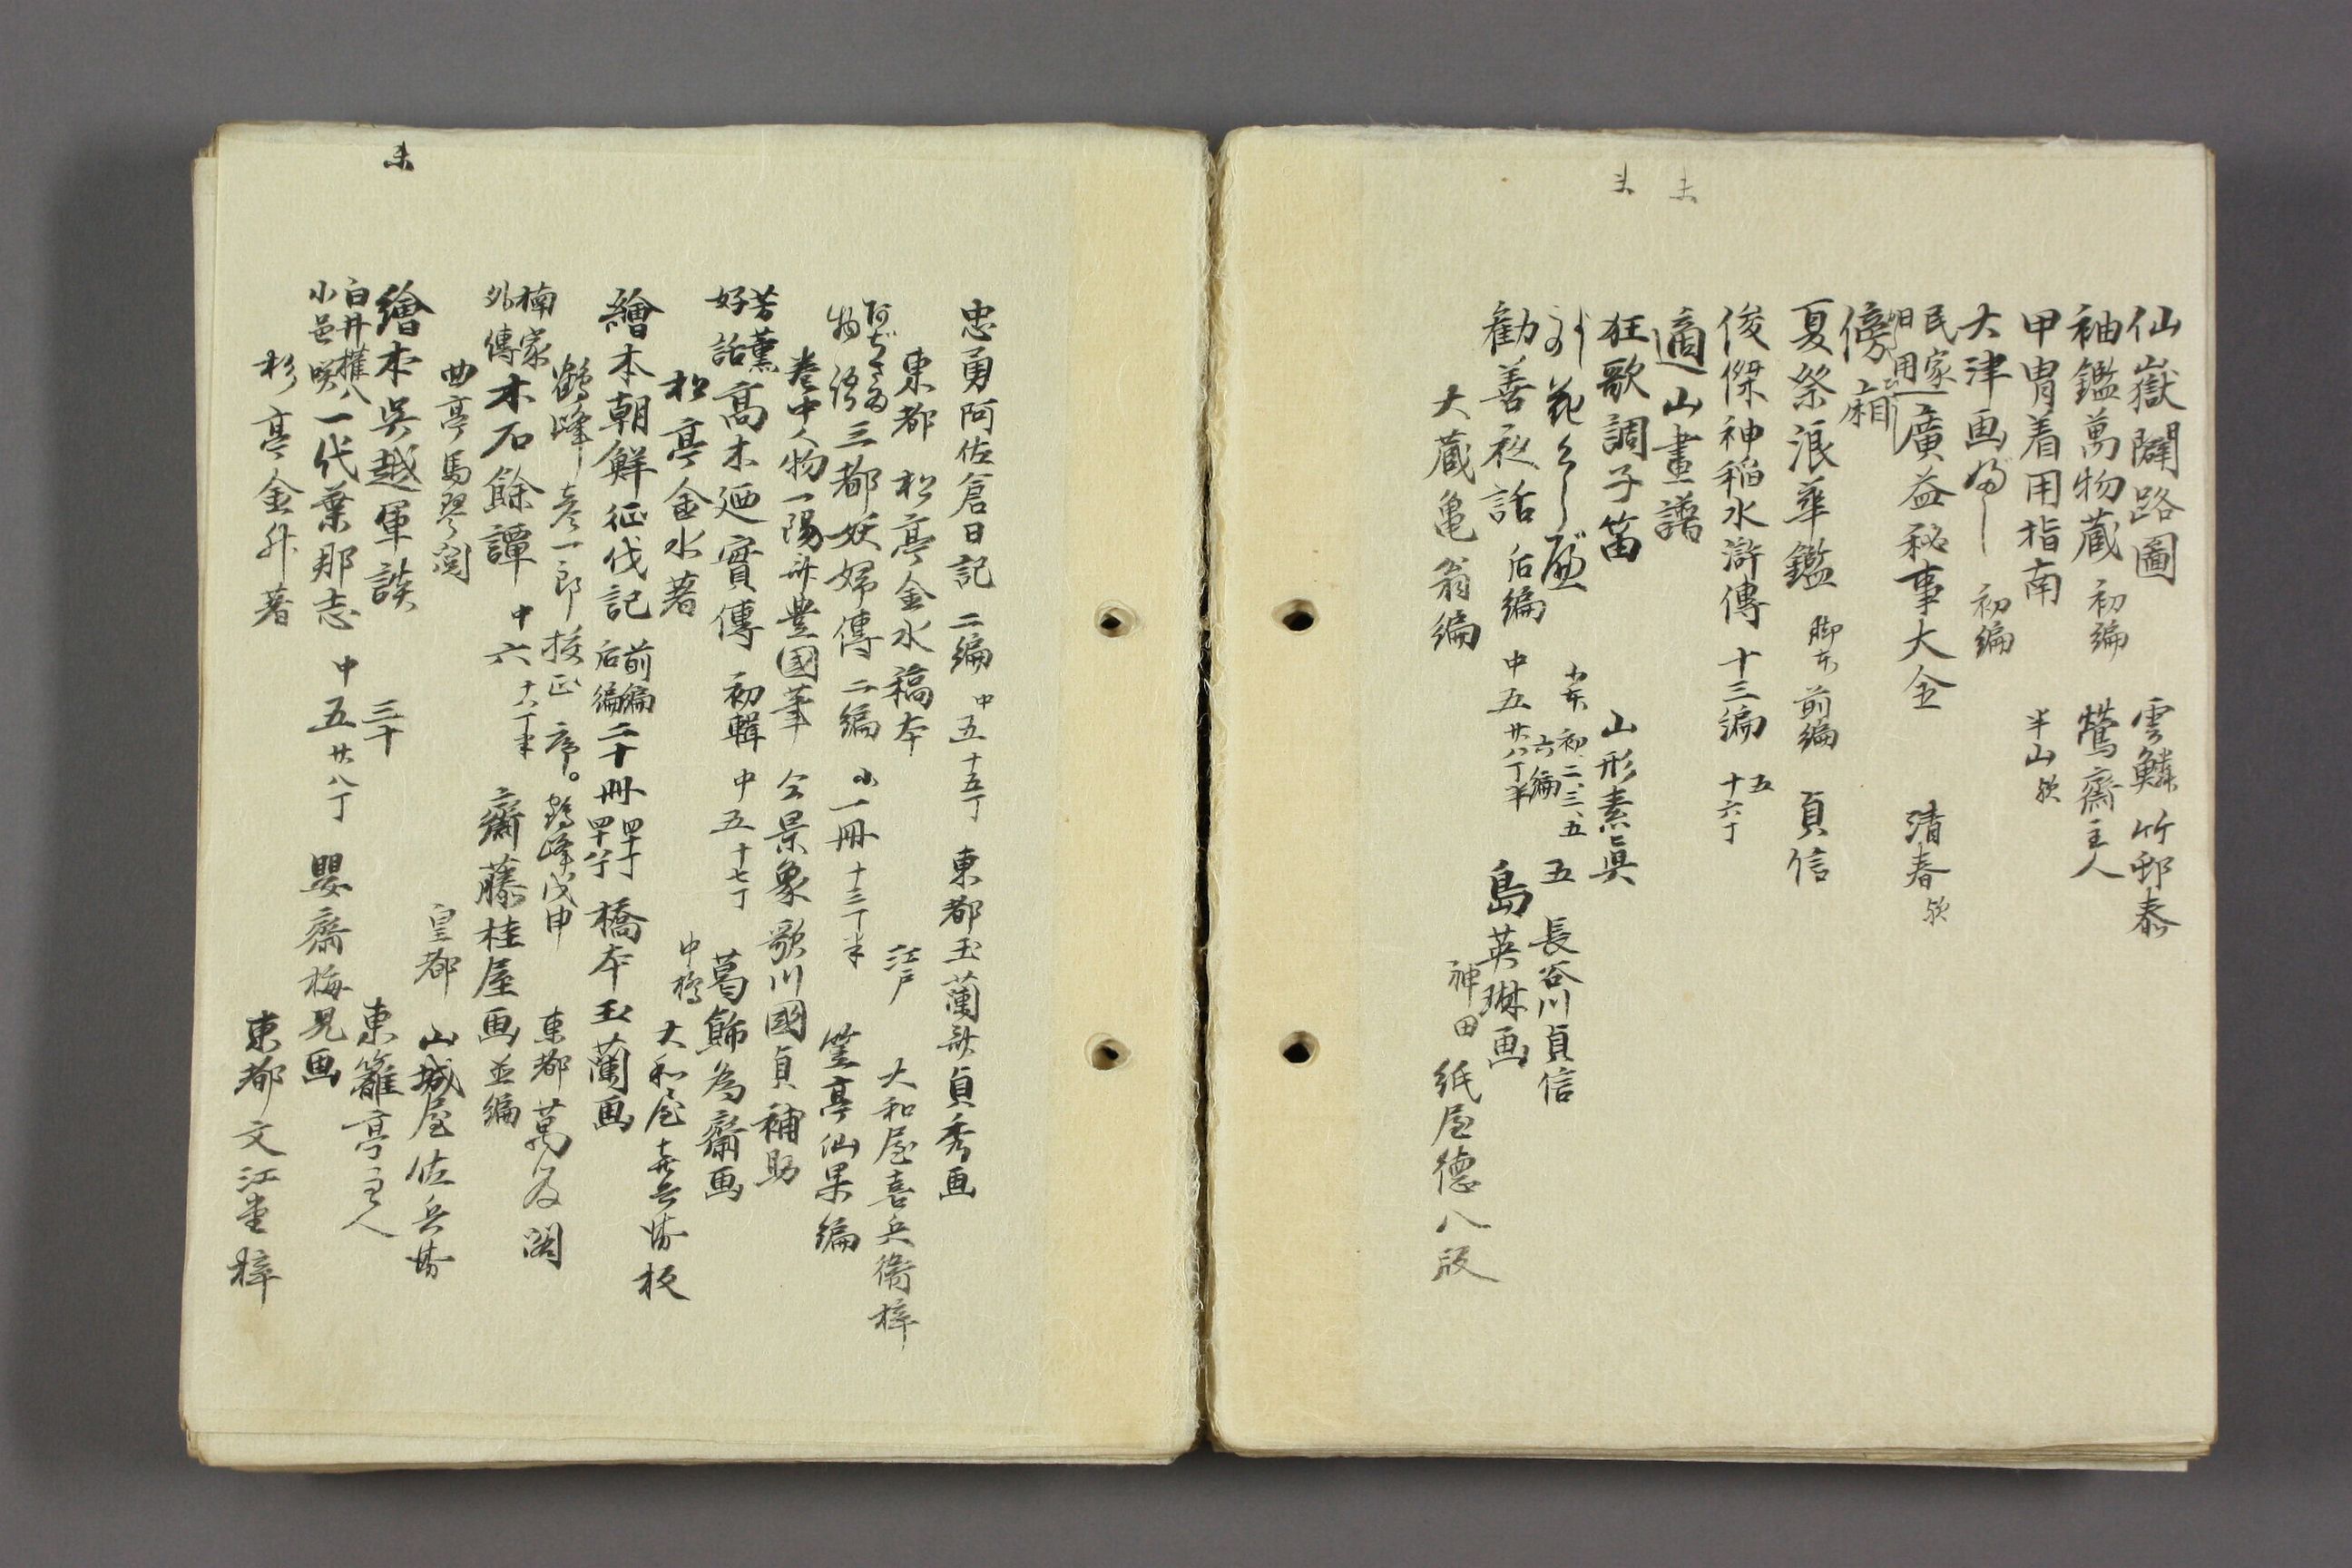 仙嶽闢路圖 雲鱗 竹邨泰
袖鑑萬物蔵 初編 鶯齋主人
甲冑着用指南 半山欤
大津画ぶし 初編
民家日用廣益秘事大全 清春欤
傍廂
夏祭浪華鑑 脚本 前編 貞信
俊傑神稲水滸傳 十三編 五 十六丁
適山畫譜
狂歌調子笛 山形素真
花くらべ 小本 初、二、三、五 六編 五 長谷川貞信
勧善夜話 后編 中五 廿八丁半 島英琳画
大蔵亀翁編 神田 紙屋德八版
忠勇阿佐倉日記 二編 中五 十五丁 東都玉蘭斎貞秀画
東都 松亭金水稿本 江戸 大和屋喜兵衞梓
物語三都妖婦傳 二編 小一冊 十三丁半 笠亭仙果編
巻中人物一陽斎豊國筆 仝景象歌川國貞補助
芳薫好話高木廼實傳 初輯 中五 十七丁 葛飾為齋画
松亭金水著 中橋 大和屋喜兵衛板
繪本朝鮮征伐記 前編后編二十冊 橋本玉蘭画
鶴峰彦一郎校正 序。鶴峰戊申 東都 萬笈閣
楠家外傳木石餘譚 中六 十八丁半 齋藤桂屋画並編
曲亭馬琴閲 皇都 山城屋佐兵衛
繪本呉越軍談 三十 東籬亭主人
白井權八小邑咲一代葉那志 中五 廿八丁 嬰齋梅見画
杉亭金升著 東都文江堂梓